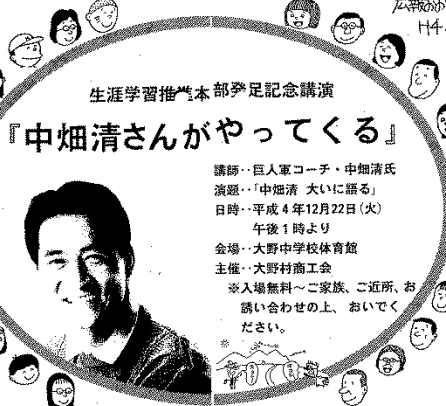 H4.
生涯学習推進本部発足記念講演
『中畑清さんがやってくる』
講師‥巨人軍コーチ・中畑清氏
演題‥「中畑清 大いに語る」
日時‥平成4年12月22日(火)
午後1時より
会場‥大野中学校体育館
主催‥大野村商工会
※入場無料〜ご家族、ご近所、お
誘い合わせの上、おいでく
ださい。